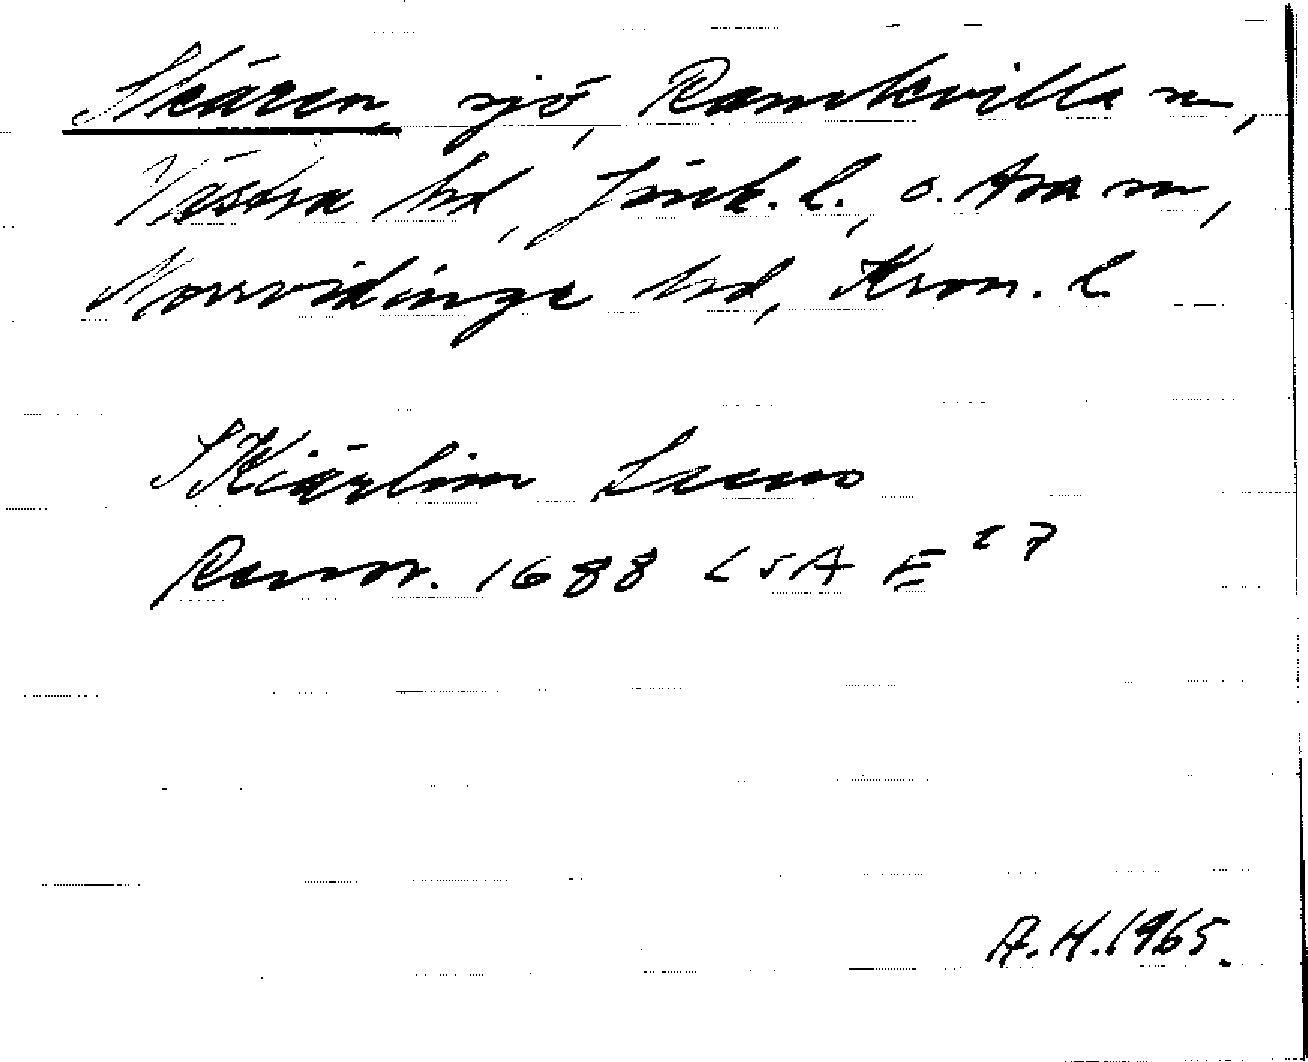 Skären, sjö, Ramkvilla sn,
Västra hd, Jönk. l., o. Asa sn,
Norrvidinge hd, Kron. l.
SKiärlim
Rannr. 1688 LSA E 27
A.H. 1965.